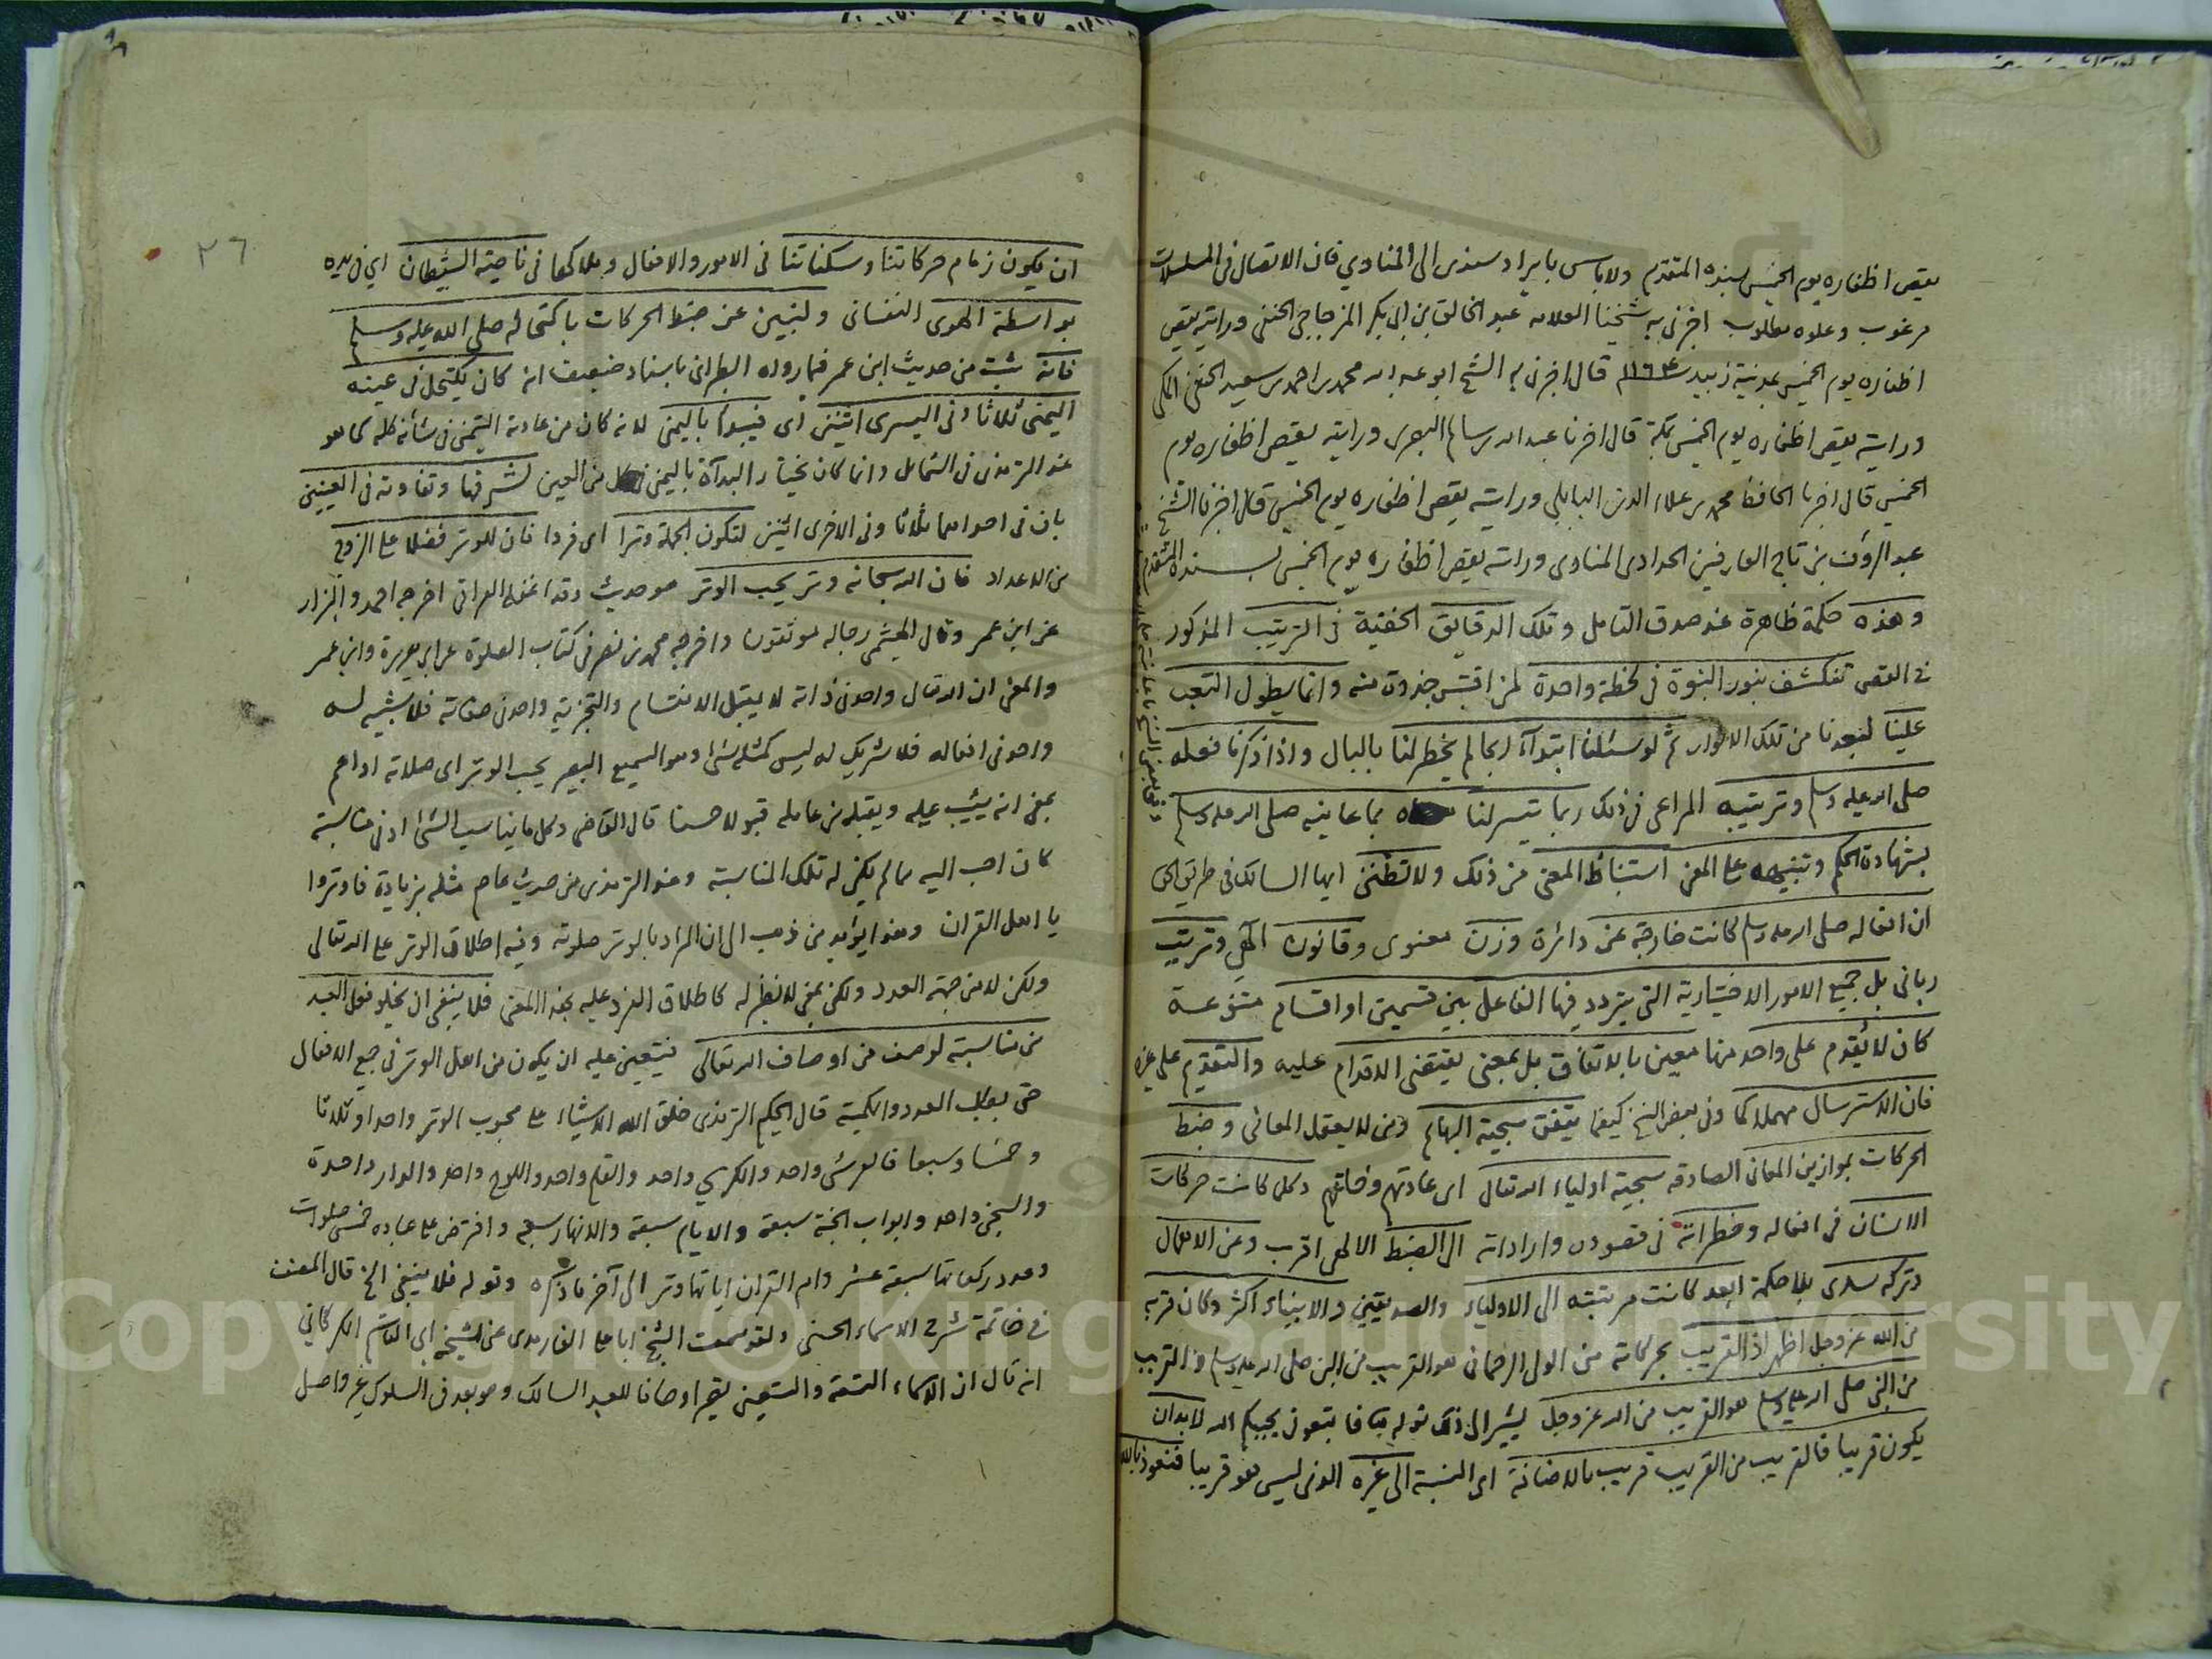 يقص اظفاره يوم الخميس بسنده المتقدم ولا باس بايراد سندى الى المناوي فان الاتصال فى المسلسلات
مرغوب وعلوه مطلوب اخبرنى به شيخنا العلامه عبد الخالق بن ابى بكر المزجاجى الحنفى ورايته يقص
اظفاره يوم الخميس بمدينة زبيد سنة ١١٦٤ قال اخبرنى به الشيخ ابو عبد الله محمد بن احمد بن سعيد الحنفى المكى
ورايته يقص اظفاره يوم الخميس بمكة قال اخبرنا عبد الله بن سالم البصرى ورايته يقص اظفاره يوم
الخميس قال اخبرنا الحافظ محمد بن علاء الدين البابلى ورايته يقص اظفاره يوم الخميس قال اخبرنا الشيخ
عبد الرؤف بن تاج العارفين الحدادى المناوى ورايته يقص اظفاره يوم الخميس بسنده المتقدم
وهذه حكمة ظاهرة عند صدق التامل وتلك الدقايق الخفية فى الترتيب المذكور
فى القص تنكشف بنور النبوة فى لحظة واحدة لمن اقتبس جذوة منه وانما يطول التعب
علينا لبعدنا من تلك الانوار ثم لو سئلنا ابتدآء ربما لم يخطر لنا بالبال واذا ذكرنا فعله
صلى الله عليه وسلم وترتيبه المراعى فى ذلك ربما تيسر لنا بما عاينه صلى الله عليه وسلم
بشهادة الحكم وتنبيهه على المعنى استنباط المعنى من ذلك ولا تظنن ايها السالك فى طريق الحق
ان افعاله صلى الله عليه وسلم كانت خارجة عن دائرة وزن معنوى وقانون الهى وترتيب
ربانى بل جميع الامور الاختيارية التى يتردد فيها الفاعل بين قسمين او اقسام متنوعة
كان لا يقدم على واحد منها معين بالاتفاق بل بمعنى يقتضى الاقدام عليه والتقديم على غيره
فان الاسترسال مهملا كما وفى بعض النسخ كيفما يتفق سجية البهائم ومن لا يعقل المعانى وضبط
الحركات بموازين المعانى الصادقه سجية اولياء الله تعالى اى عادتهم وخلقهم وكلما كانت حركات
الانسان فى افعاله وخطراته فى قصوده واراداته الى الضبط الالهى اقرب وعن الاهمال
وتركه سدى بلا حكمة ابعد كانت مرتبته الى الاولياء والصديقين والانبياء اكثر وكان قربه
من الله عز وجل اظهر اذ القريب بحركاته من الولى الرحمانى هو القريب من النبى صلى الله عليه وسلم والقريب
من النبى صلى الله عليه وسلم هو القريب من الله عز وجل يشير الى ذلك قوله تعا فاتبعونى يحببكم الله لا بد ان
يكون قريبا فالقريب من القريب قريب بالاضافة اى النسبة الى غيره الذى ليس هو قريبا فنعوذ بالله
٢٦
ان يكون زمام حركاتنا وسكناتنا فى الامور والافعال وملاكها فى ناصية الشيطان اي فى يده
بواسطة الهوى النفسانى ولنبين عن ضبط الحركات باكتحاله صلى الله عليه وسلم
فانه ثبت من حديث ابن عمر فيما رواه الطبرانى باسناد ضعيف انه كان يكتحل فى عينه
اليمنى ثلاثا وفى اليسرى اثنين اى فيبدأ باليمنى لانه كان من عادته التيمن فى شأنه كله كما هو
عند الترمذى فى الشمائل وانما كان يختار البدآءة باليمنى من العين لشرفها وتفاوته فى العينين
بان فى احداهما ثلاثا وفى الاخرى اثنين لتكون الجملة وترا اى فردا فان للوتر فضلا على الزوج
من الاعداد فان الله سبحانه وتر يحب الوتر هو حديث وقد اغفله العراقى اخرجه احمد والبزار
عن ابن عمر وقال الهيثمى رجاله موثقون واخرجه محمد بن نصر فى كتاب الصلوة عن ابى هريرة وابن عمر
والمعنى ان الله تعالى واحد فى ذاته لا يقبل الانقسام والتجزيه واحد فى صفاته فلا شبيه له
واحد فى افعاله فلا شريك له ليس كمثله شئ وهو السميع البصير يحب الوتر اى صلاته او اعم
بمعنى انه يثيب عليه ويقبله من عامله قبولا حسنا قال القاضى وكل ما يناسب الشئ ادنى مناسبة
كان احب اليه مما لم يكن له تلك المناسبة وعند الترمذى من حديث عاصم مثله بزيادة فاوتروا
يا اهل القران وهذا يؤيد من ذهب الى ان المراد بالوتر صلوته وفيه اطلاق الوتر على الله تعالى
ولكن لا من جهة العدد ولكن بمعنى لا نظير له كاطلاق الفرد عليه بهذا المعنى فلا ينبغى ان يخلو فعل العبد
من مناسبة لوصف من اوصاف الله تعالى فيتعين عليه ان يكون من اهل الوتر فى جميع الافعال
حتى يطلب العدد والكمية قال الحكيم الترمذى خلق الله الاشياء على محبوب الوتر واحدا وثلاثا
وخمسا وسبعا فالعرش واحد والكرسي واحد والقلم واحد واللوح واحد والدار واحدة
والسجن واحد وابواب الجنة سبعة والايام سبعة والانهار سبعه وافترض على عباده خمس صلوات
وعدد ركعاتها سبعة عشر وام القران اياتها وتر الى آخر ما ذكره وقوله فلا ينبغى الخ قال المصنف
فى خاتمة شرح الاسماء الحسنى ولقد سمعت الشيخ ابا على الفارمدى عن شيخه ابى القاسم الكركانى
انه قال ان الاسماء التسعة والتسعين تصير اوصافا للعبد السالك وهو بعد فى السلوك غير واصل